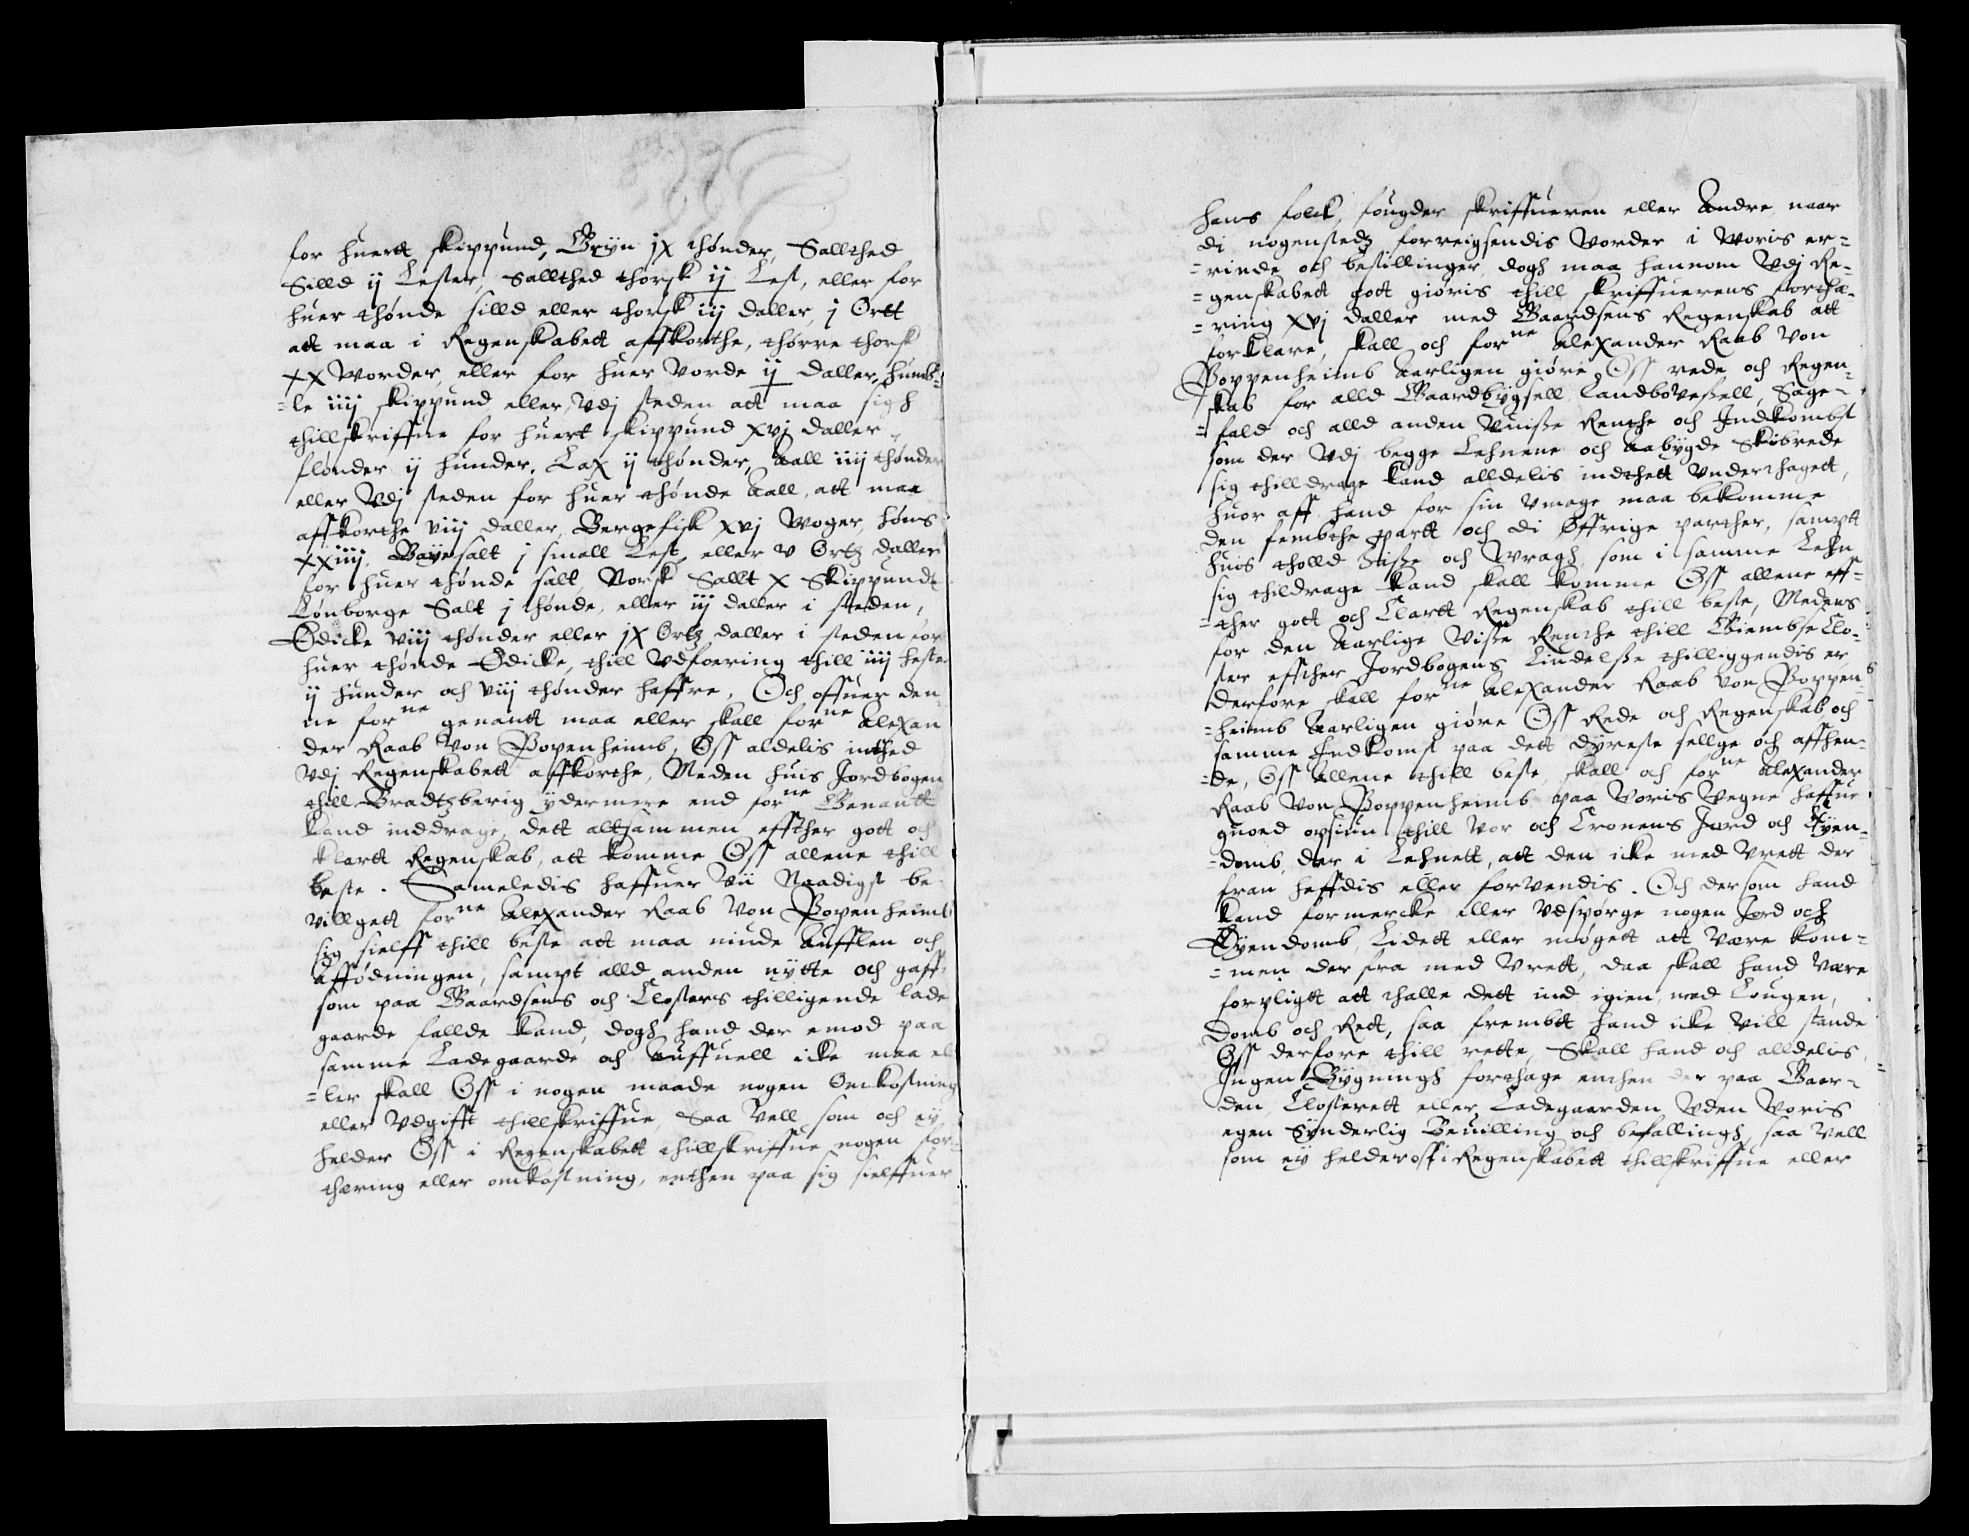 for huertt skippund, Gryn jx thønder, Sallthed
Silld ij Lester, Sallthed thorsk ij Lest, eller for
huer thønde silld eller thorsk iij daller, j Ortt
att maa i Regenskabett affkorthe, thørre thorsk
xx Worder, eller for huer Vorde ij daller, humb-
=le iiij skippund eller, Vdj steden att maa sigh
thillskriffue for huert skippund xvj daller
flønder ij hunder, Lax ij thønder, Aall iiij thønder
eller Vdj steden for huer thønde Aall, att maa
affkorthe viij daller, Bergefisk xvj Woger, høns
xxiiij, Bayesalt j small Lest, eller v Ortz daller
for huer thønde salt, Norsk Sallt x Skippundt
Lønborge Salt j thønde, eller iij daller i steden,
Ødicke viij thønder eller jx Ortz daller i steden for
huer thønde Ødicke, thill Vdfoering thill iiij heste
ij hunder och viij thønder haffre, Och offuer den
ne forne genantt maa eller skall forne Alexan
der Raab Von Popenheimb, Oss aldelis inthed
Vdj Regenskabett affkorthe, Meden huis Jordbogen
thill Bradtzberig ydermere end forne Genantt
kand inddrage, dett altsammen effther gott och
klartt Regenskab, att komme Oss allene thill
beste. Sameledis haffuer Vii Naadigst be-
villgett forne Alexander Raab Von Popenheimb
sig sielff thill beste att maa niude Aufflen och
Affødningen, sampt alld anden nytte och gaffn
som paa Gaardsens och Closters thilligende lade
gaarde fallde kand, dogh hand der emod paa
samme Ladegaarde och Auffuell icke maa el
=ler skall Oss i nogen maade nogen Omkostning
eller Vdgifft thillskriffue, Saa Vell som och ey
helder Oss i Regenskabett thillskriffue nogen for-
thæring eller omkostning, enthen paa sig sielffuer
hans folck, fougder skriffueren eller Andre, naar
di nogenstedz forreigsendis Vorder i Woris er=
=rinde och bestillinger, dogh maa hannom Vdj Re=
=genskabett gott giøris thill skriffuerens forthæ-
=ring xvj daller med Gaardsens Regenskab att
forklare, skall och forne Alexander Raab Von
Poppenheimb Aarligen giøre Oss rede och Regen-
skab for alld Gaardbygsell, Landboveßell, Sage-
=fald och alld anden Vuiße Renthe och Indkombst
som der Vdj begge Lehnene och Aabygde Skibrede
sig thilldrage kand alldelis indthett Vnderthagett,
huor aff hand for sin Vmage maa bekomme
den fembthe partt och di Øffrige parther, sampt
huis tholld Siße och Wragh, som i samme Lehn
sig thildrage kand skall komme Oss allene eff=
=ther gott och Clartt Regenskab thill beste, Medens
for den Aarlige Viße Renthe thill Giembse Clo-
ster effther Jordbogens Liudelße thilliggendis er
derfore skall forne Alexander Raab Von Poppen
=heimb Aarligen giøre Oss Rede och Regenskab och
samme Indkomst paa dett dyreste sellge och affhen-
=de, Oss Allene thill beste, skall och forne Alexander
Raab Von Poppenheimb paa Voris Vegne haffue
guoed opsiun thill Vor och Cronens Jord och Eyen-
=domb, der i Lehnett, att den icke med Vrett der
fran heffdis eller forvendis. Och dersom hand
kand formercke eller Vdspørge nogen Jord och
Eyendomb, Lidett eller møgett att Være kom=
=men der fra med Vrett, daa skall hand Være
forpligtt att thalle dett ind igien, med Lougen,
Domb och Rett, saa frembtt hand icke Vill stande
Oss derfore thill rette, Skall hand och alldelis
Ingen Bygningh forthage enthen der paa Gaar-
den, Closterett eller Ladegaarden, Vden Voris
egen Synderlig Beuilling och befallingh, saa Vell
som ey helder oss i Regenskabett thillskriffue eller